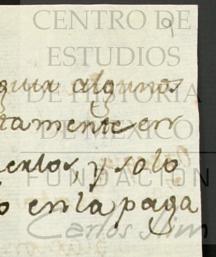 CENTRO DE
ESTUDIOS
algunos
DE HISTORIA
tamente en
DE MÉXICO
, y solo
FUNDACIÓN
o en la paga
Carlos Slim